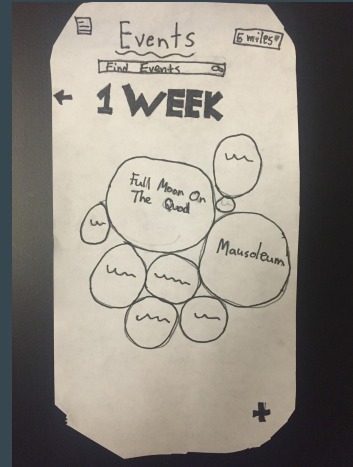 Events
6 miles
Find Events
1 WEEK
Full Moon On
The Quad
Mausoleum